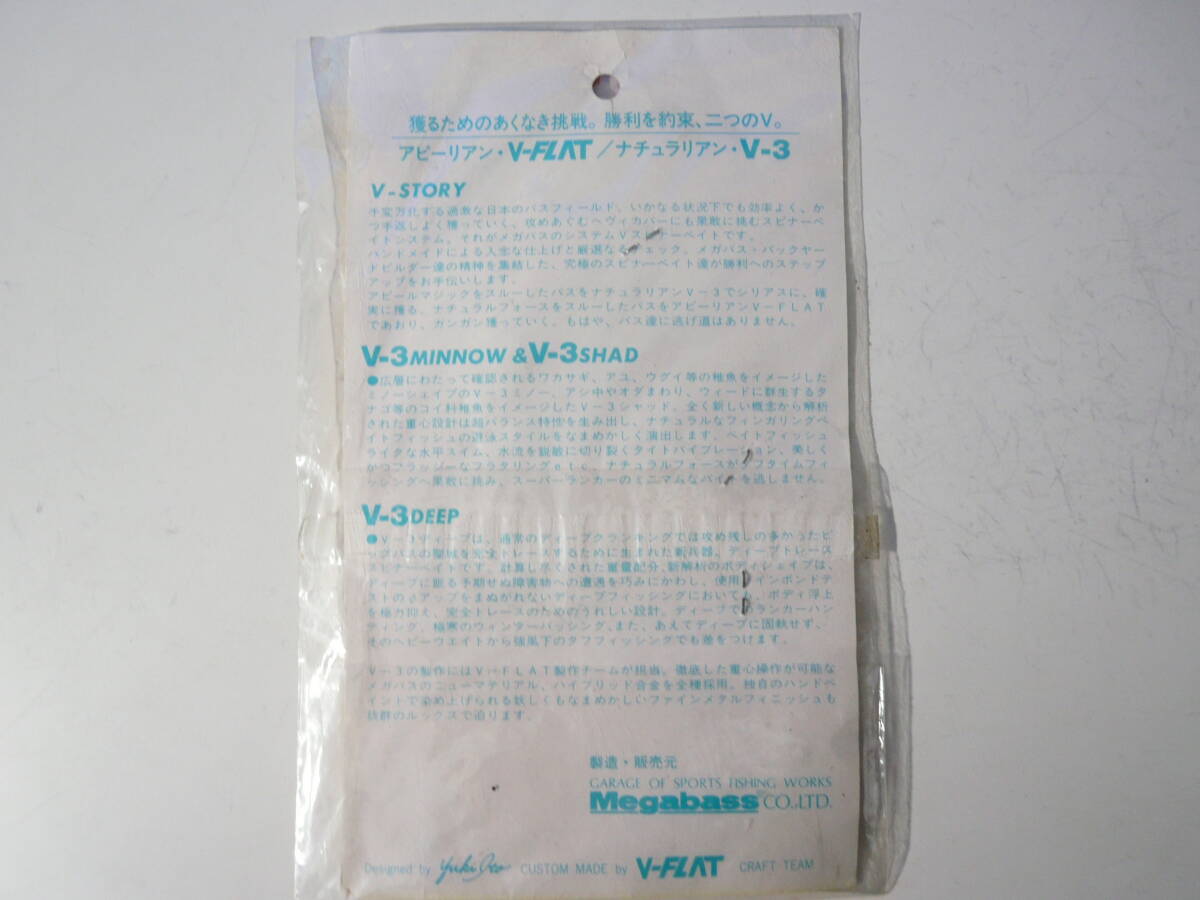 獲るためのあくなき挑戦。勝利を約束、二つのV。
アピーリアン・V-FLAT/ナチュラリアン・V-3
V-STORY
千変万化する過激な日本のバスフィールド、いかなる状況下でも効率よく、か
つ手返しよく獲っていく、攻めあぐむヘヴィカバーにも果敢に挑むスピナーベ
イトシステム。それがメガバスのシステムVスナーベイトです。
ハンドメイドによる入念な仕上げと厳選なるチェック、メガバス・バックヤー
ドビルダー達の精神を集結した、究極のスピナーベイト達が勝利へのステップ
アップをお手伝いします。
アピールマジックをスルーしたバスをナチュラリアンV-3でシリアスに、確
実に獲る。ナチュラルフォースをスルーしたバスをアピーリアンV-FLAT
であおり、ガンガン獲っていく。もはや、バス達に逃げ道はありません。
V-3MINNOW & V-3SHAD
●広層にわたって確認されるワカサギ、アユ、ウグイ等の稚魚をイメージした
ミノーシェイプのV-3ミノー、アシ中やオダまわり、ウィードに群生するタ
ナゴ等のコイ科稚魚をイメージしたV-3シャッド。全く新しい概念から解析
された重心設計は超バランス特性を生み出し、ナチュラルなフィンガリングベ
イトフィッシュの遊泳スタイルをなまめかしく演出します。ベイトフィッシュ
ライクな水平スイム、水流を鋭敏に切り裂くタイトバイブレーション、美しく
かつフラッシーなフラタリングetc、ナチュラルフォースがタフタイムフィ
ッシングへ果敢に挑み、スーパーランカーのミニマムなバイトを逃しません。
V-3DEEP
●V-3ディープは、通常のディープクランキングでは攻め残しの多かったビ
ッグバスの聖域を完全トレースするために生まれた新兵器。ディープトレース
スピナーベイトです。計算し尽くされた重量配分、新解析のボディシェイプは、
ディープに眠る予期せぬ障害物への遭遇を巧みにかわし、使用ラインポンドテ
ストのアップをまぬがれないディープフィッシングにおいても、ボディ浮上
を極力抑え、完全トレースのためのうれしい設計。ディープでのランカーハン
ティング、極寒のウィンターバッシング、また、あえてディープに固執せず、
そのヘビーウエイトから強風下のタフフィッシングでも差をつけます。
V-3の製作にはV-FLAT製作チームが担当。徹底した重心操作が可能な
メガバスのニューマテリアル、ハイブリッド合金を全種採用。独自のハンドペ
イントで染め上げられる妖しくもなまめかしいファインメタルフィニッシュも
抜群のルックスで迫ります。
製造・販売元
GARAGE OF SPORTS FISHING WORKS
Megabass CO.,LTD.
Designed by Yuki Ito CUSTOM MADE by V-FLAT CRAFT TEAM